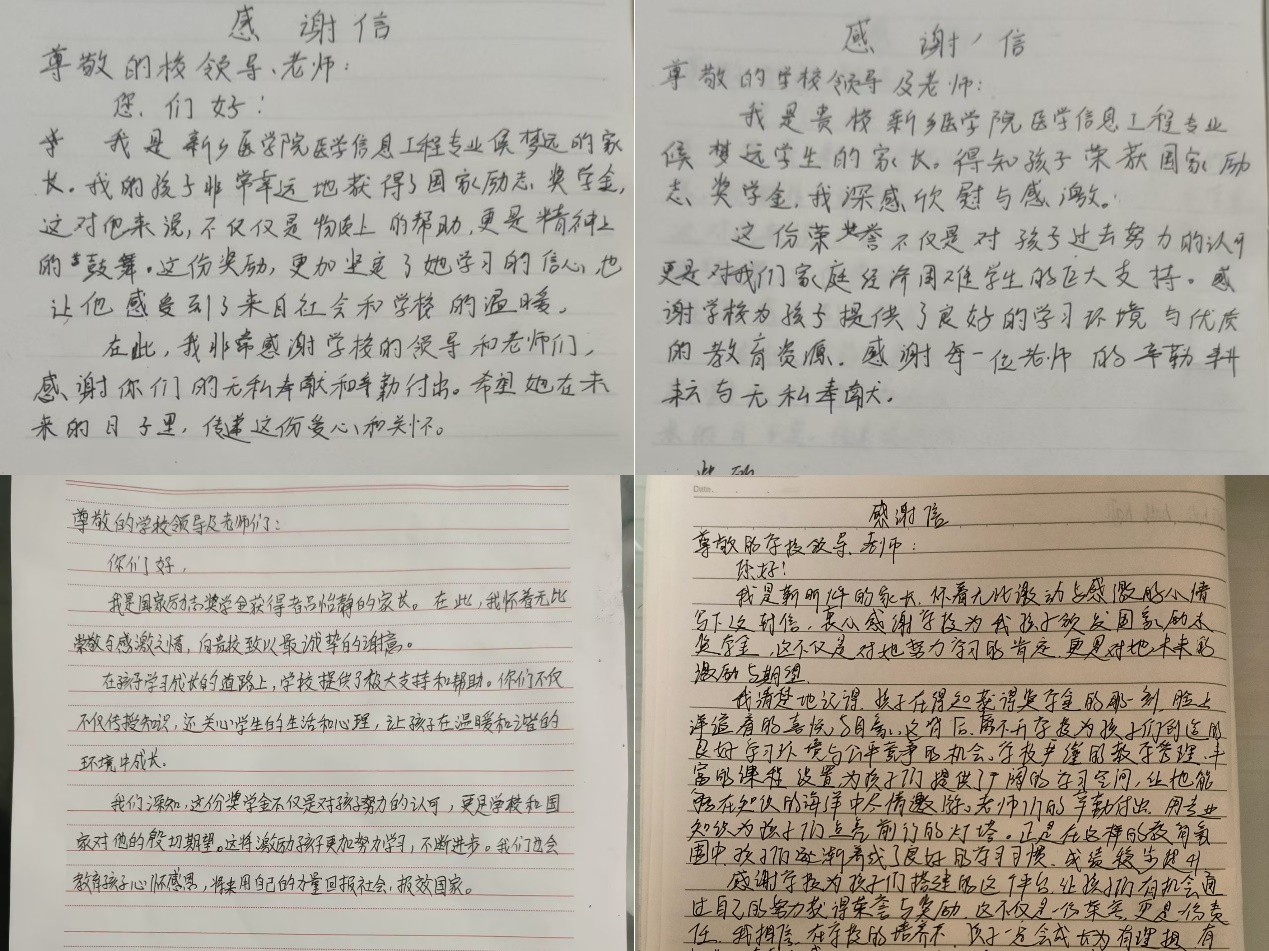 感谢信
尊敬的校领导、老师:
您们好!
我是新乡医学院医学信息工程专业侯梦远的家
长。我的孩子非常幸运地获得了国家励志奖学金,
这对他来说,不仅仅是物质上的帮助,更是精神上
的鼓舞。这份奖励,更加坚定了她学习的信心,也
让他感受到了来自社会和学校的温暖。
在此,我非常感谢学校的领导和老师们,
感谢你们的无私奉献和辛勤付出。希望她在未
来的日子里,传递这份爱心和关怀。
感谢信
尊敬的学校领导及老师:
我是贵校新乡医学院医学信息工程专业
侯梦远学生的家长。得知孩子荣获国家励
志奖学金,我深感欣慰与感激。
这份荣誉不仅是对孩子过去努力的认可
更是对我们家庭经济困难学生的巨大支持。感
谢学校为孩子提供了良好的学习环境与优质
的教育资源。感谢每一位老师的辛勤耕
耘与无私奉献。
尊敬的学校领导及老师们:
你们好,
我是国家励志奖学金获得者吕怡静的家长。在此,我怀着无比
崇敬与感激之情,向贵校致以最诚挚的谢意。
在孩子学习成长的道路上,学校提供了极大支持和帮助。你们不仅
不仅传授知识,还关心学生的生活和心理,让孩子在温暖和谐的
环境中成长。
我们深知,这份奖学金不仅是对孩子努力的认可,更是学校和国
家对他的殷切期望。这将激励孩子更加努力学习,不断进步。我们也会
教育孩子心怀感恩,将来用自己的力量回报社会,报效国家。
Date.
感谢信
尊敬的学校领导、老师:
您好!
我是靳明伟的家长,怀着无比激动与感激的心情
写下这封信,衷心感谢学校为我孩子颁发国家励志
奖学金,这不仅是对她努力学习的肯定,更是对她未来的
激励与期望。
我清楚地记得,孩子在得知获得奖学金的那一刻,脸上
洋溢着的喜悦与自豪。这背后,离不开学校为孩子们创造的
良好学习环境与公平竞争的机会。学校严谨的教学管理、丰
富的课程设置为孩子们提供了广阔的学习空间,让她能
够在知识的海洋中尽情遨游。老师们的辛勤付出,用专业
知识为孩子们点亮前行的灯塔。正是在这样的教育氛
围中,孩子们逐渐养成了良好的学习习惯,成绩稳步提升。
感谢学校为孩子们搭建的这个平台,让孩子们有机会通
过自己的努力获得荣誉与奖励,这不仅是一份荣誉,更是一份责
任。我相信,在学校的培养下,孩子一定会成长为有理想、有